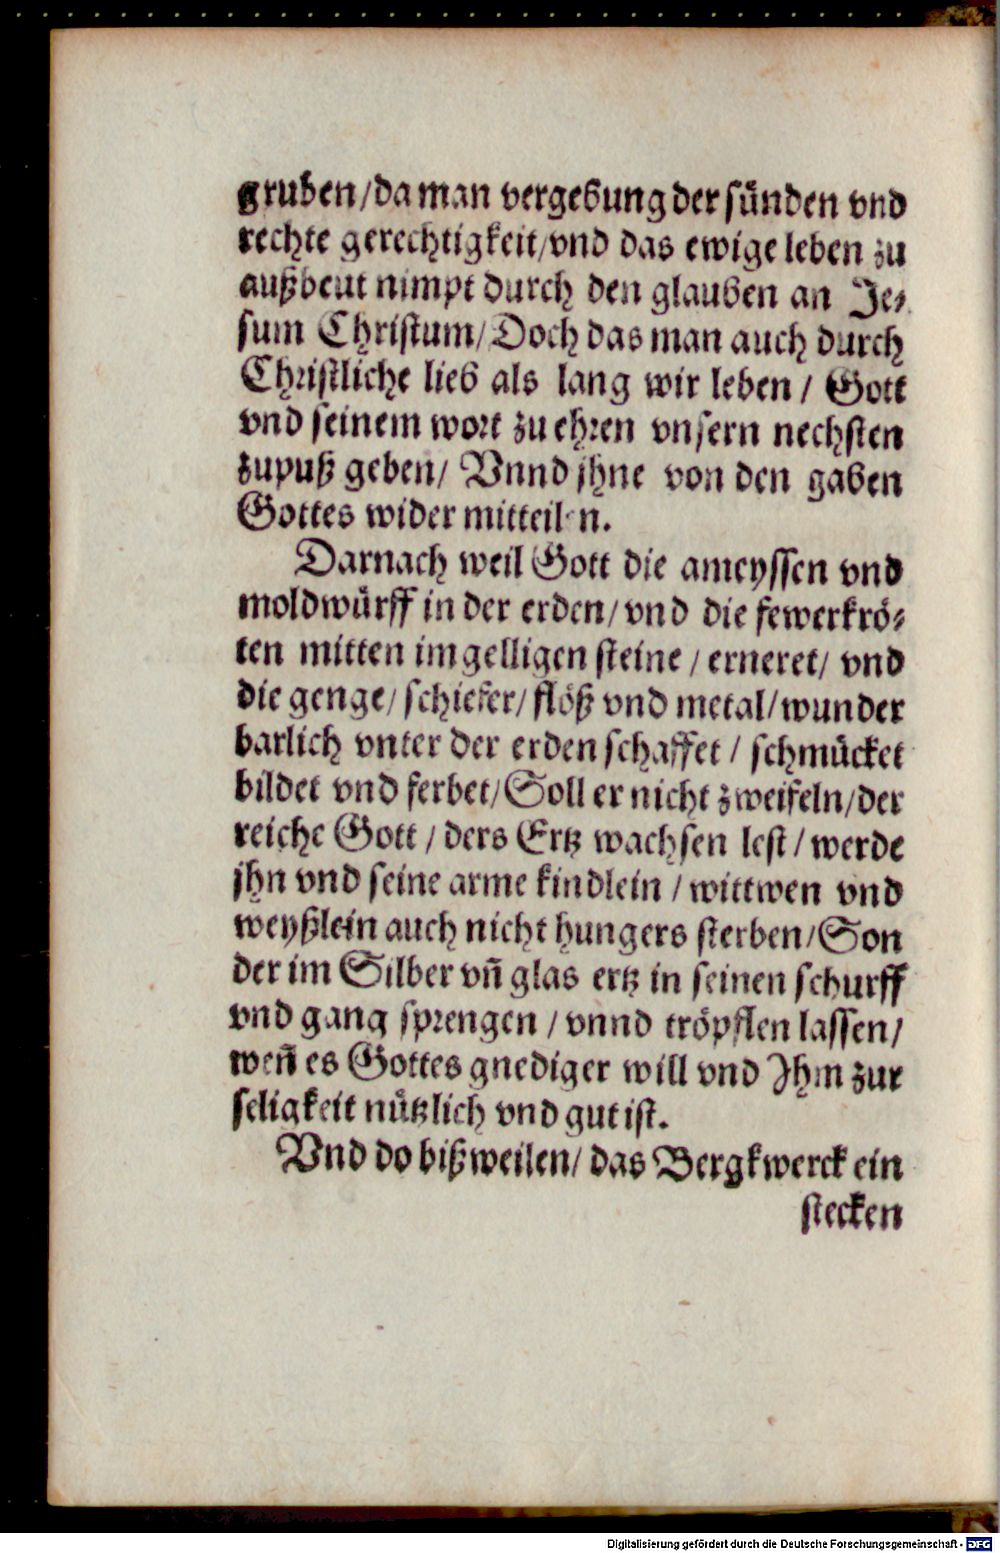 gruben/da man vergebung der sünden vnd
rechte gerechtigkeit/vnd das ewige leben zu
außbeut nimpt durch den glauben an Je⸗
sum Christum/Doch das man auch durch
Christliche lieb als lang wir leben/ Gott
vnd seinem wort zu ehren vnsern nechsten
zupuß geben/ Vnnd jhne von den gaben
Gottes wider mitteil n.
Darnach weil Gott die ameyssen vnd
moldwürff in der erden/vnd die fewerkrö⸗
ten mitten im gelligen steine/erneret/ vnd
die genge/schiefer/flöß vnd metal/wunder
barlich vnter der erden schaffet/ schmücket
bildet vnd ferbet/Soll er nicht zweifeln/der
reiche Gott/ders Ertz wachsen lest/werde
jhn vnd seine arme kindlein/wittwen vnd
weyßlein auch nicht hungers sterben/Son
der im Silber vn̄ glas ertz in seinen schurff
vnd gang sprengen/vnnd tröpflen lassen/
wen̄ es Gottes gnediger will vnd Jhm zur
seligkeit nützlich vnd gut ist.
Vnd do bißweilen/das Bergkwerck ein
stecken
Digitalisierung gefördert durch die Deutsche Forschungsgemeinschaft - DFG